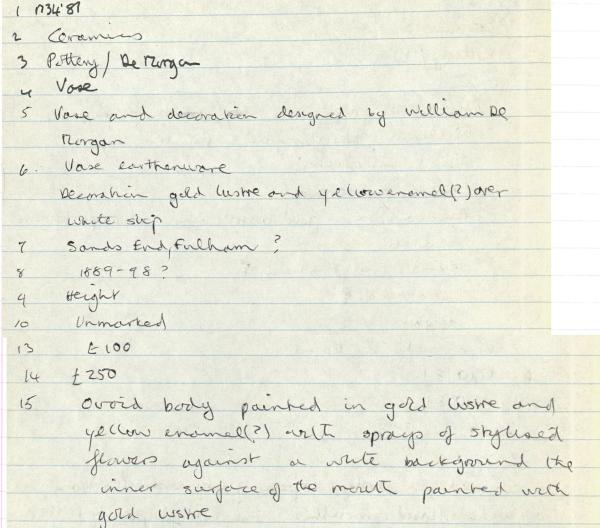 1 N34'87
2 Ceramics
3 Pottery / De Morgan
4 Vase
5 Vase and decoration designed by William De
Morgan
6. Vase earthenware
Decoration gold lustre and yellow enamel(?) over
white slip
7 Sands End, Fulham ?
8 1889-98 ?
9 Height
10 Unmarked
13 £100
14 £250
15 Ovoid body painted in gold lustre and
yellow enamel(?) with sprays of stylised
flowers against a white background the
inner surface of the mouth painted with
gold lustre